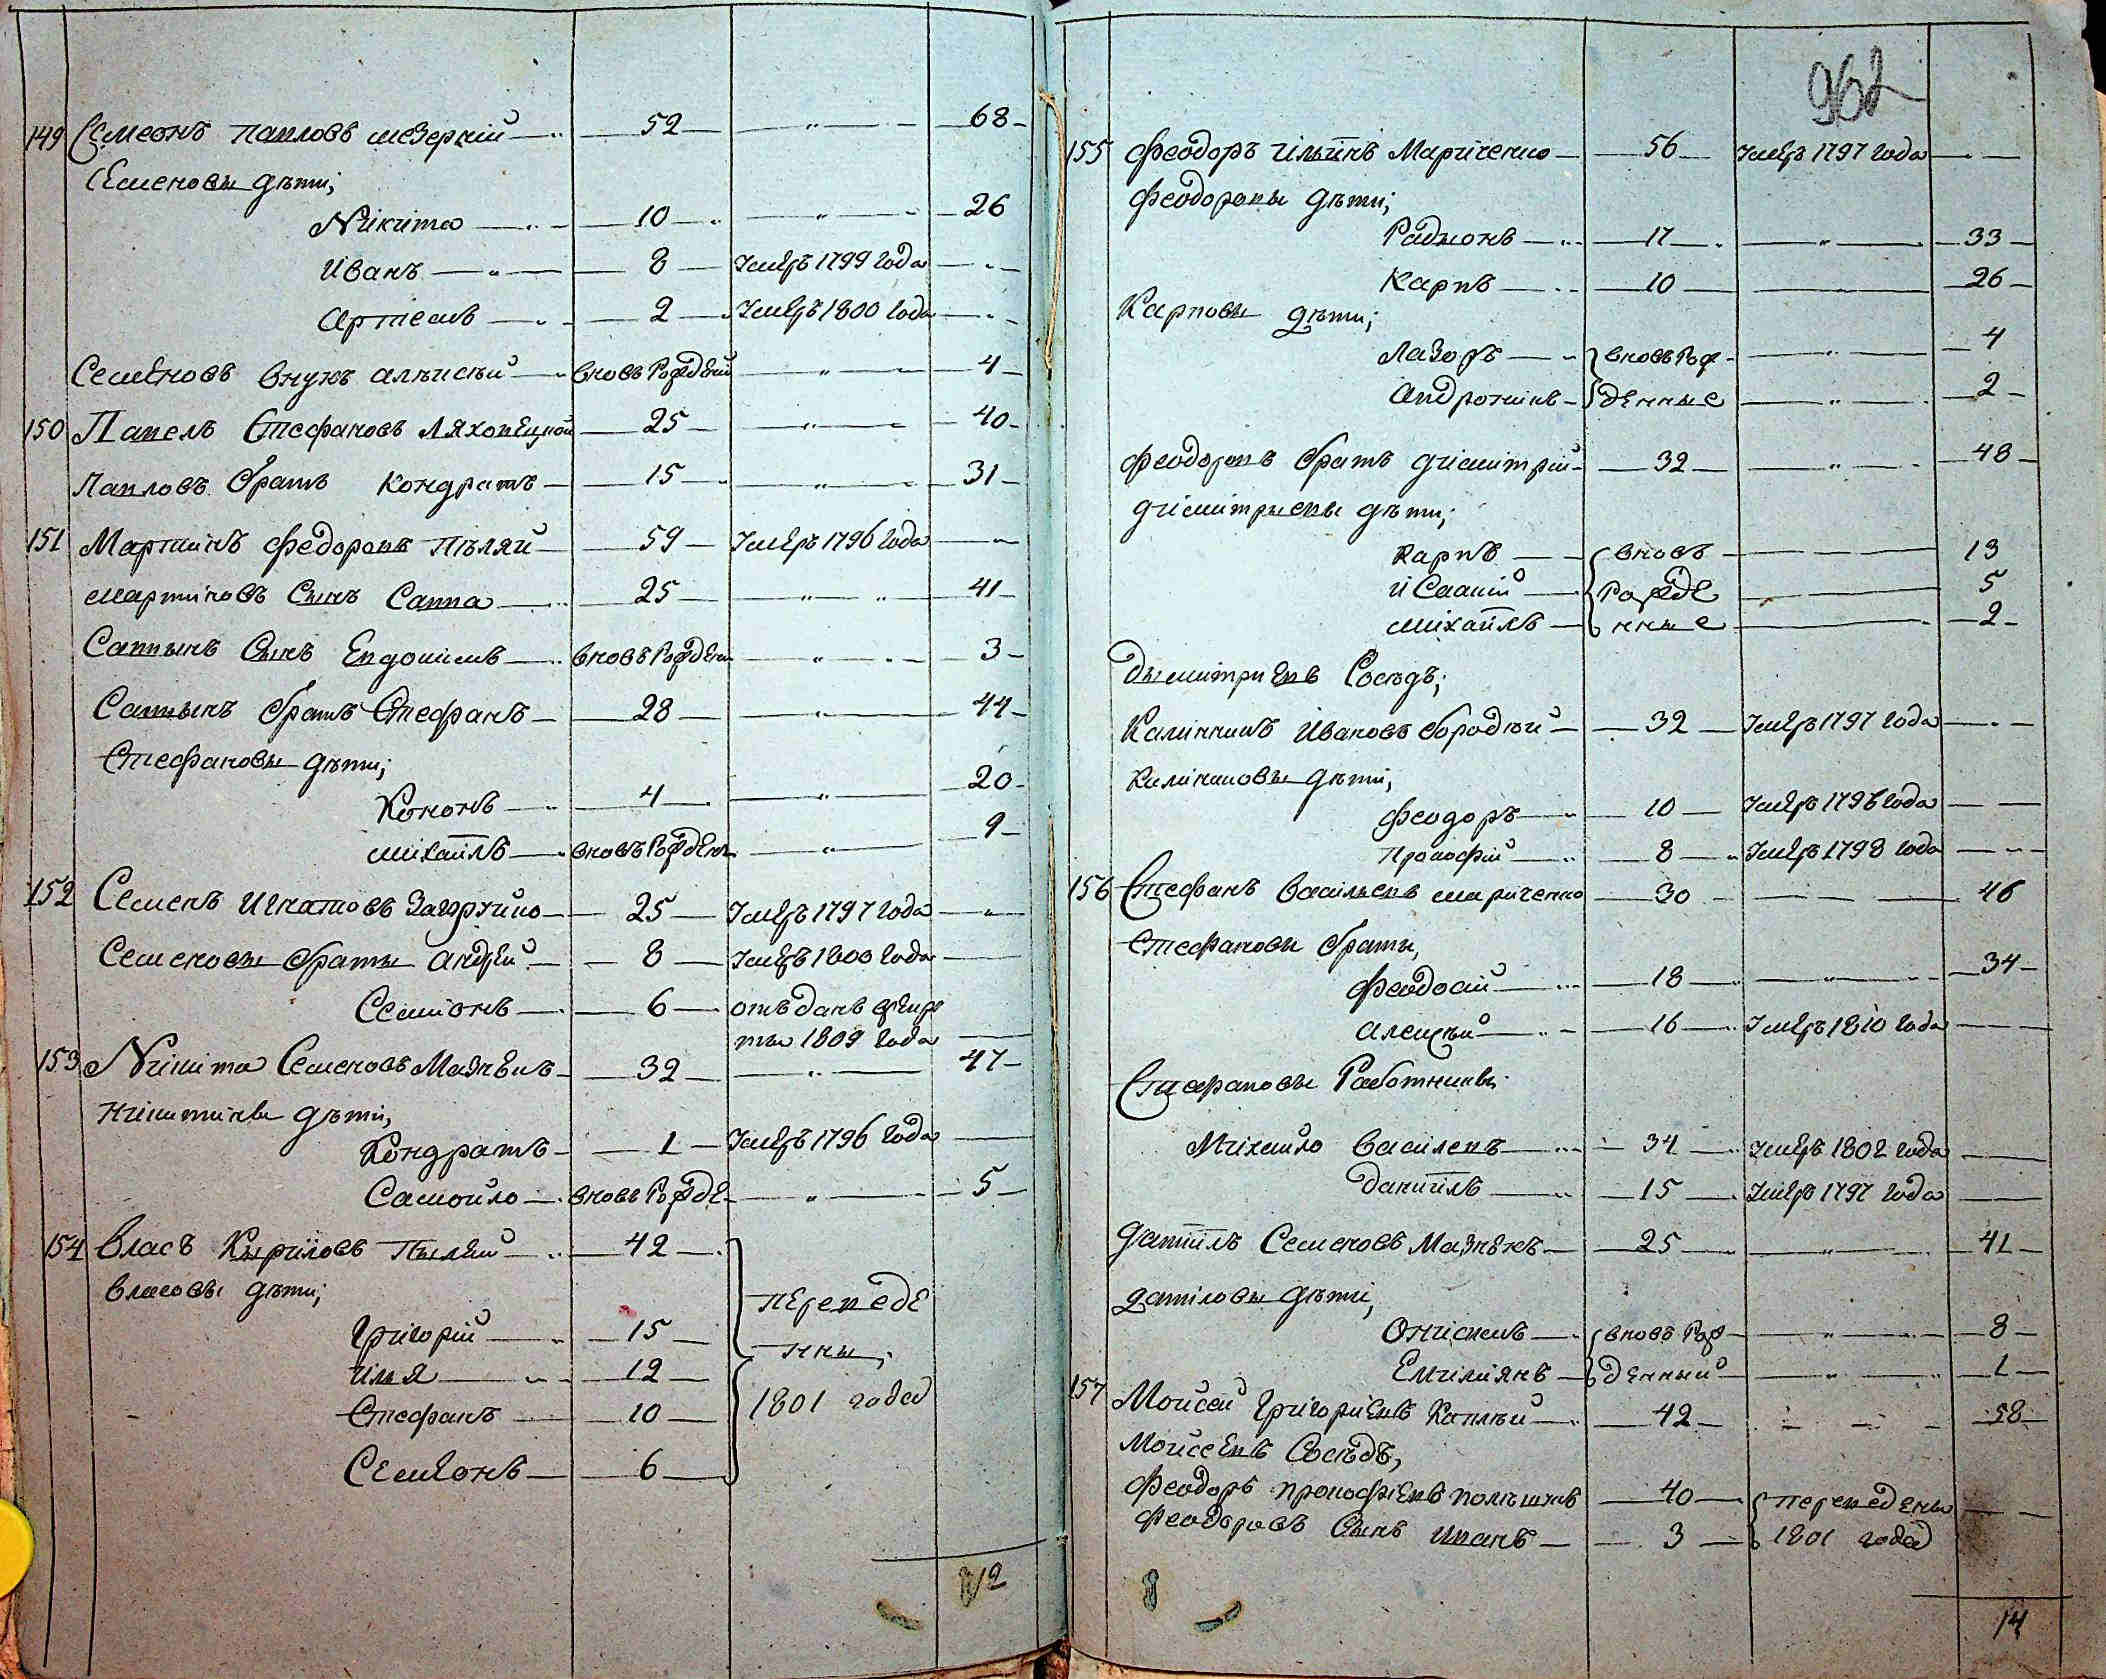 149 Семеонъ Павловъ Шезеркій — 52 — „ — 68
Семеновы дѣти;
Нікита — 10 — „ — 26
Иванъ — 8 — Умеръ 1799 года — „ —
Артемъ — 2 — Умеръ 1800 года — „ —
Семеновъ внукъ Алѣксѣй — вновь Рожденій — „ — 4
150 Павелъ Стефановъ Ляховецкой — 25 — „ — 40
Павловъ братъ Кондратъ — 15 — „ — 31
151 Мартинъ Федоровъ Пѣляй — 59 — Умеръ 1796 года — „
Мартіновъ Сынъ Савва — 25 — „ — 41
Саввынъ Сынъ Евдокимъ — вновь Рожден — „ — 3
Саввынъ братъ Стефанъ — 28 — „ — 44
Стефановы дѣти;
Кононъ — 4 — „ — 20
Михаилъ — вновь Рожден — „ — 9
152 Семенъ Игнатовъ — 25 — Умеръ 1797 года — „
Семеновы браты Андрей — 8 — Умеръ 1800 года —
Семіонъ — 6 — отъданъ врекр
ты 1809 года —
153 Нікита Семеновъ Мазнѣкъ — 32 — „ — 47
Нікитины дѣти,
Кондратъ — 1 — Умеръ 1796 года —
Самойло — вновь Рожде — „ — 5
154 Власъ Кыриловъ Пыляй — 42
Власовы дѣти;
Григорій — 15 — переведе
нны;
Илья — 12
Стефанъ — 10 — 1801 года
Семеонъ — 6
12
962
155 Феодоръ Ільинъ Маріченко — 56 — Умеръ 1797 года —
Феодоровы дѣти;
Радионъ — 17 — „ — 33
Карпъ — 10 — 26
Карповы дѣти;
Лазоръ — вновь Рож — „ — 4
Андроникъ — денные — „ — 2
Феодоровъ братъ Дімитрій — 32 — „ — 48
Дімитрыевы дѣти;
Карпъ — вновь — 13
Исаакій — рожде — 5
Міхаилъ — нные — 2
Дымитриевъ Сосѣдъ;
Калинникъ Ивановъ Бородѣй — 32 — Умеръ 1797 года —
Калініковы дѣти,
Феодоръ — 10 — Умеръ 1796 года —
Прокофій — 8 — Умеръ 1798 года —
156 Стефанъ Васильевъ Маріченко — 30 — 46
Стефановы браты,
Феодосій — 18 — „ — 34
Алексѣй — 16 — Умеръ 1810 года —
Стефановы Работники
Михайло Василевъ — 34 — Умеръ 1802 года —
Даниилъ — 15 — Умеръ 1797 года —
Даниилъ Семеновъ Мазнѣкъ — 25 — „ — 41
Даниловы дѣти,
Онисимъ — вновь Рож — „ — 8
Емиліянъ — денный — „ — 1
157 Мойсей Григориевъ — 42 — 58
Мойсеевъ Сосѣдъ,
Феодоръ Прокофіевъ — 40 — переведены —
Феодоровъ Сынъ Иванъ — 3 — 1801 года
14